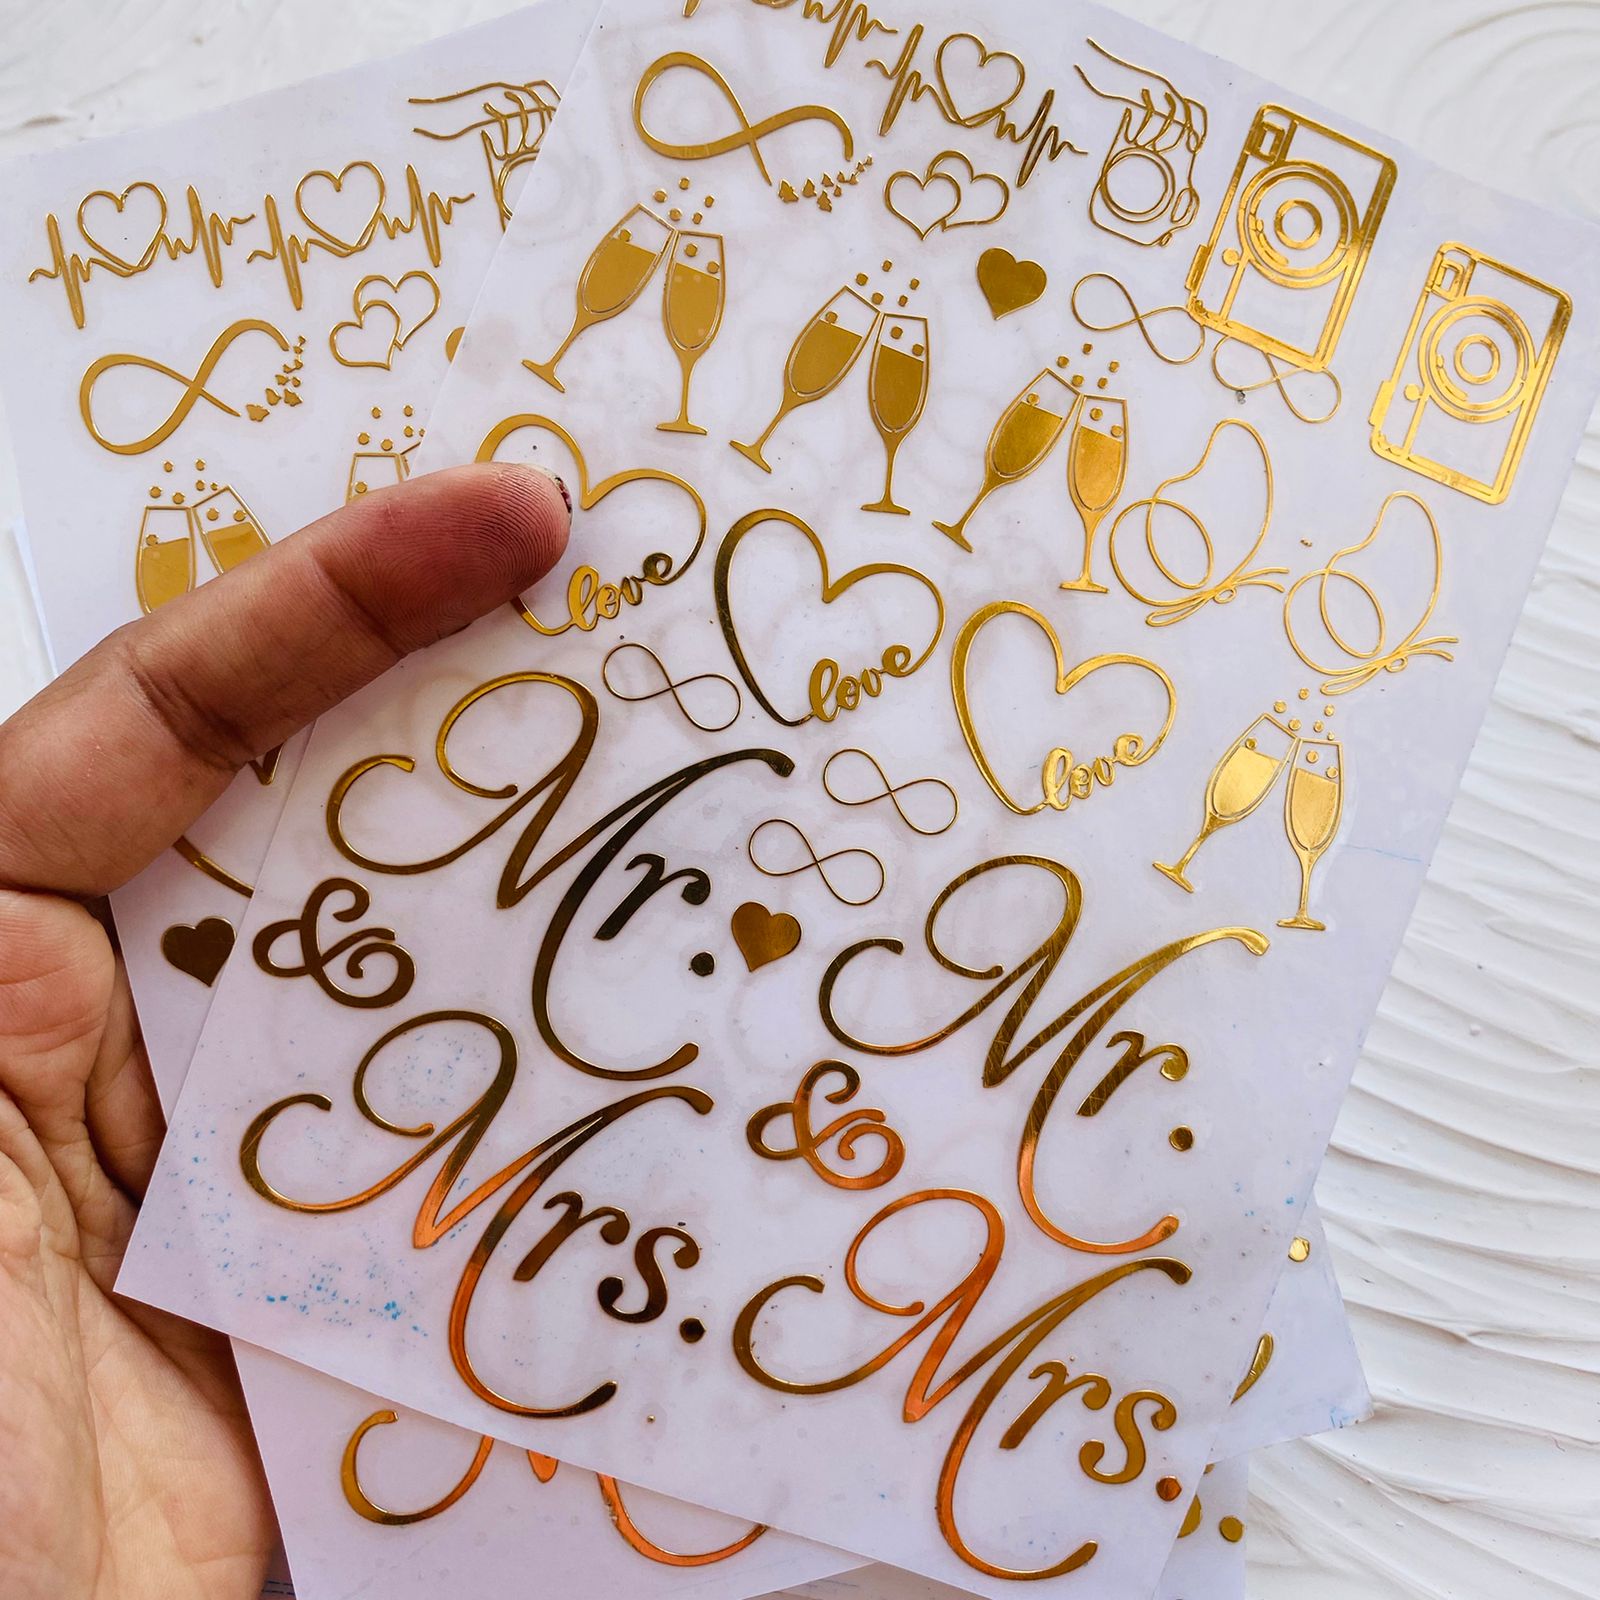 love
love
love
Mr.
&
Mrs.
Mr.
&
Mrs.